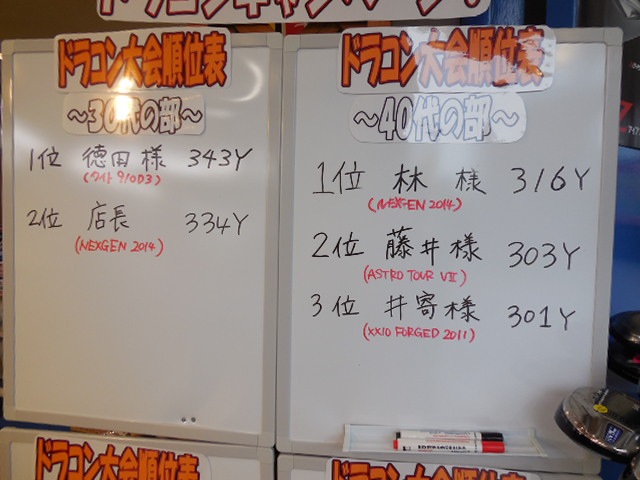 ドラコン大会順位表
～30代の部～
1位 徳田様 343Y
2位 店長 334Y
(NEXGEN 2014)
ドラコン大会順位表
～40代の部～
1位 林様 316Y
(NEXGEN 2014)
2位 藤井様 303Y
(ASTRO TOUR VII)
3位 井寄様 301Y
(XXIO FORGED 2011)
ドラコン大会順位表
ドラコン大会順位表